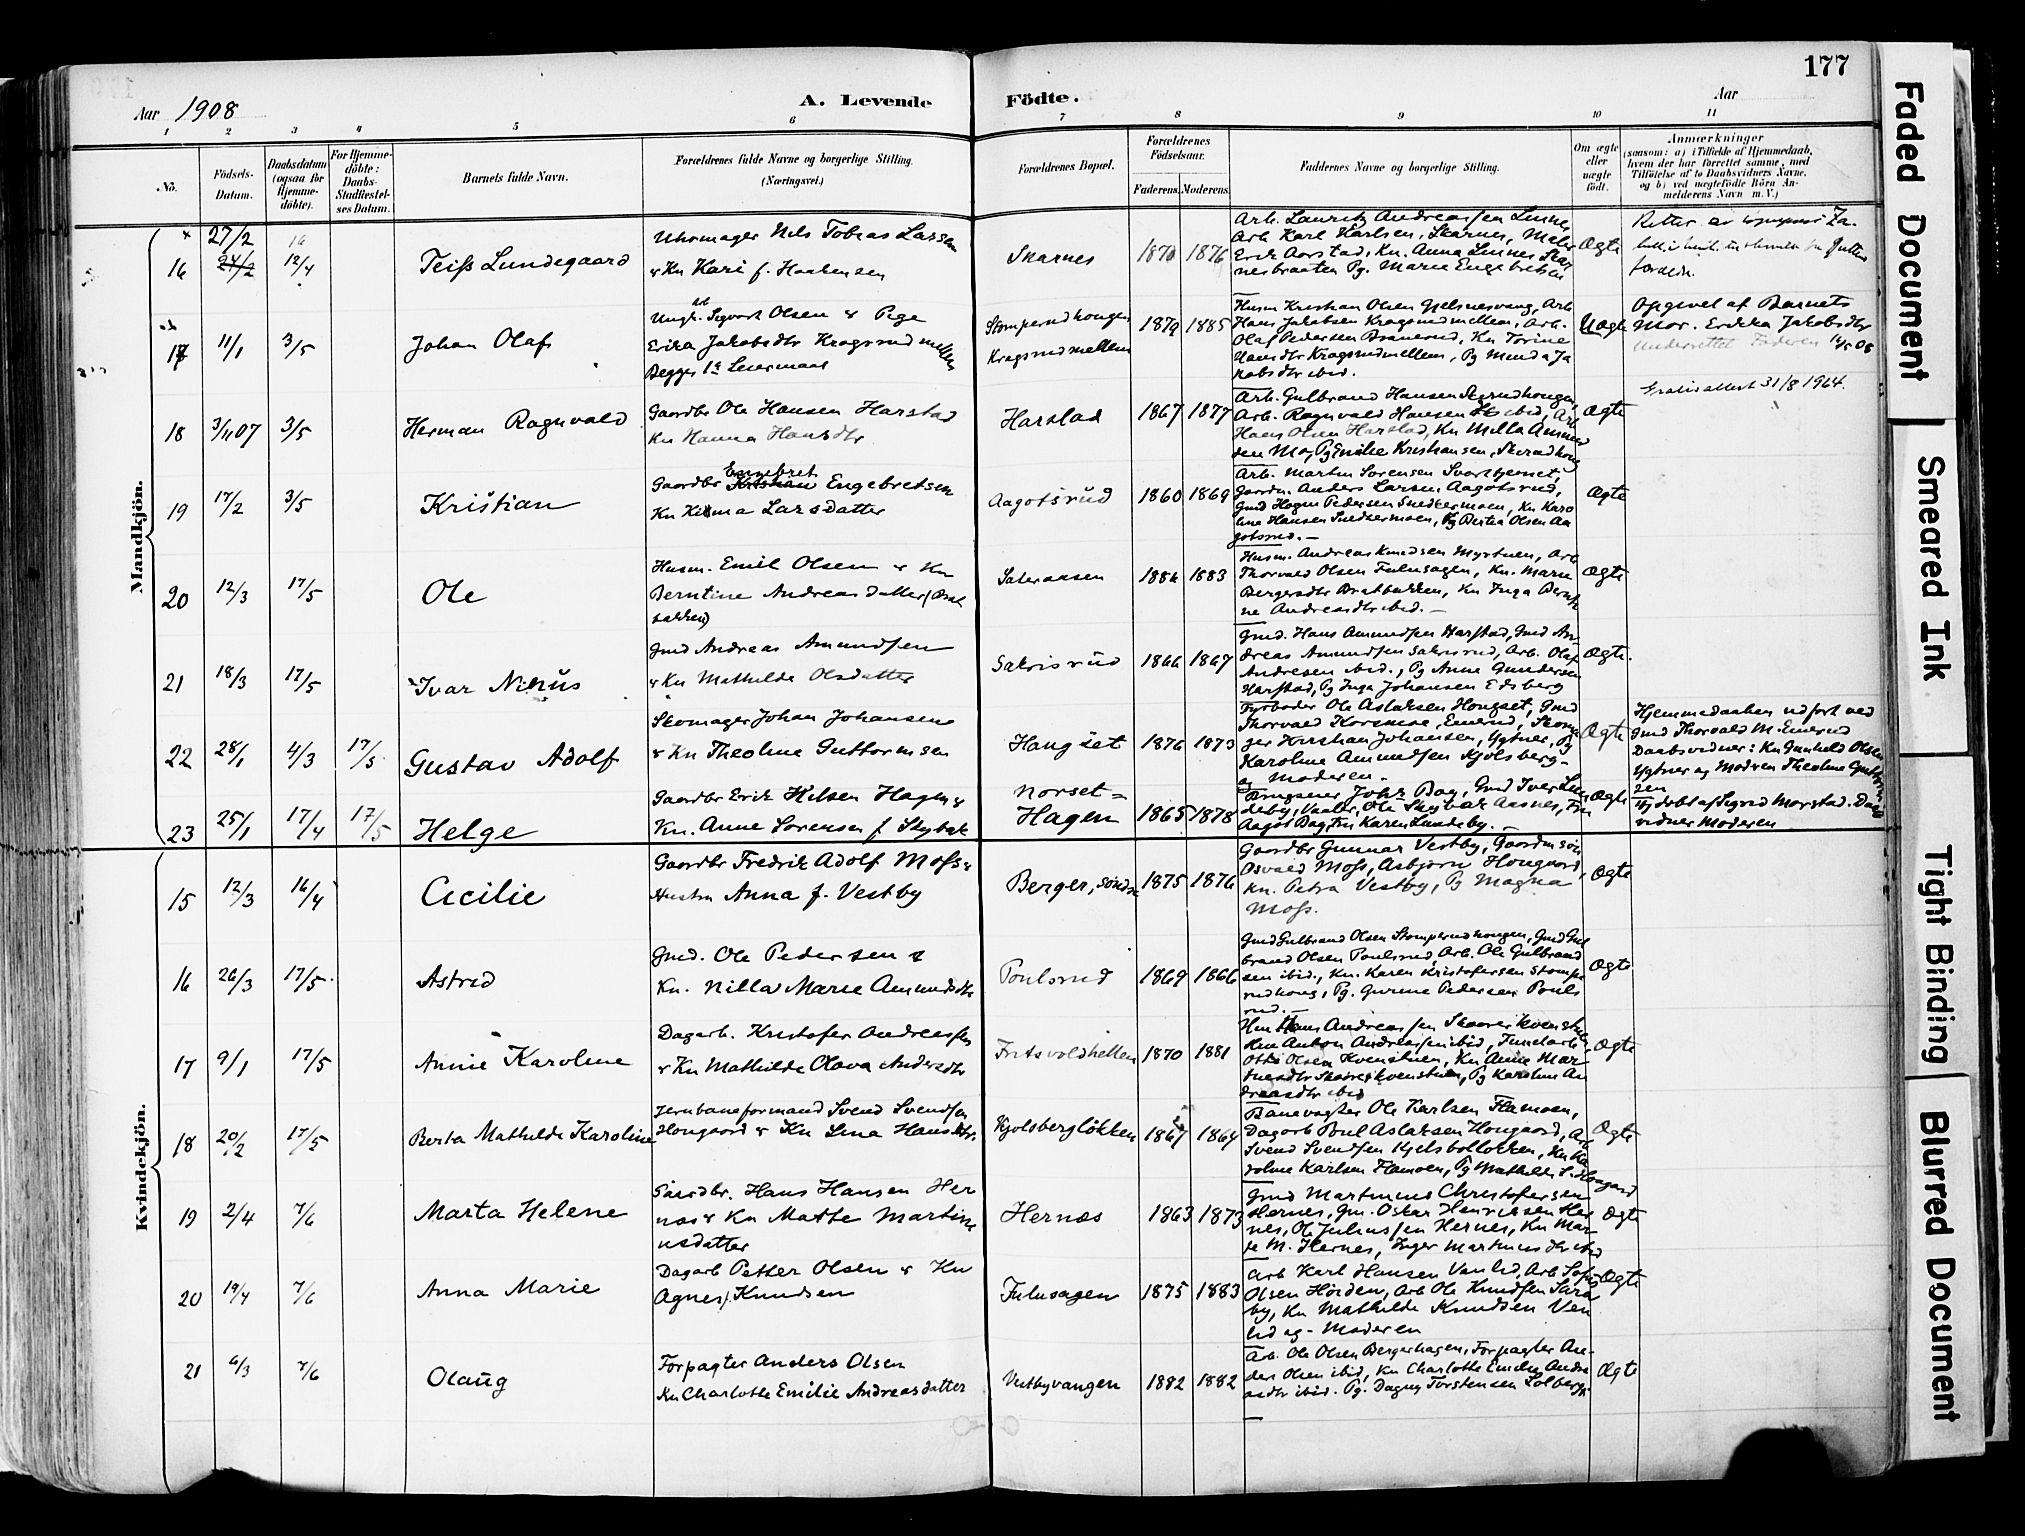 177
Aar 1908
A. Levende Födte.
Aar
1 2 3 4 5 6 7 8 9 10 11
No.
Födsels-Datum.
Daabsdatum (ogsaa for Hjemme-döbte).
For Hjemme-döbte: Daabs-Stadfæstel-ses Datum.
Barnets fulde Navn.
Forældrenes fulde Navne og borgerlige Stilling. (Næringsvei.)
Forældrenes Bopæl.
Forældrenes Födselsaar.
Faderens. Moderens.
Faddernes Navne og borgerlige Stilling.
Om ægte eller uægte födt.
Anmærkninger
(saasom: a) i Tilfælde af Hjemmedaab,
hvem der har forrettet samme, med
Tilföielse af to Daabsvidners Navne,
og b) ved uægtefödte Börn An-
melderens Navn m. V.)
Mandkjön.
16 27/2 24/2 12/4 Teiss Lundegaard
Uhrmager Nils Tobias Larsen
& Kn Kari f. Haakensen
Skarnes 1870 1876
Arb. Lauritz Andreassen Linne
Arb Karl Karlsen, Skarnes, Maler
Erik Aorstad, Kn. Anna Linnes Skar
nesbraaten Pg. Marie Engebretsen
Ægte
17 11/1 3/5 Johan Olaf
Ungk. arb Sigvart Olsen & Pige
Erika Jakobsdtr Kragsrudmellem
Begges 1ste Leiermaal
Stomperudhougen
Kragsrudmellem
1879 1885
Husm Kristian Olsen Gjelsnesvang, Arb
Hans Jakobsen Kragsrudmellem, Arb.
Olaf Pedersen Branerud, Kn Torine
Hansdtr Kragsrudmellem, Pg Minda Ja
kobsdtr ibid.
Uægte
Opgivet af Barnets
Mor. Erikka Jakobsdtr
Underrettet Faderen 14/5 08
18 3/11 07 3/5 Herman Ragnvald
Gaardbr Ole Hansen Harstad
Kn Hanna Hansdtr
Harstad 1867 1877
Arb. Gulbrand Hansen Skerudhougen,
Arb. Ragnvald Hansen ibid, Arb
Hans Olsen Harstad, Kn Milla Amund
sen Mo, Pg Emilie Kristiansen, Skerudhoug
Ægte
Gratisattest 31/8 1964.
19 17/2 3/5 Kristian
Gaardbr Engebret Kristian Engebretsen
Kn Larsdatter
Aagotsrud 1860 1869
Arb. Martin Sorensen Svartbjernet,
Gaardm. Anders Larsen Aagotsrud,
Gmd Hagen Pedersen Snedkermoen, Kn Karo
line Hansen Snedkermoen, Pg Berta Olsen Aa
gotsrud.
Ægte
20 12/3 17/5 Ole
Husm. Emil Olsen & Kn
Berntine Andreasdatter (Brat
bakken)
Sateraasen 1884 1883
Husm. Andreas Knudsen Myrtuen, Arb
Thorvald Olsen Fulusagen, Kn. Marie
Bergersdtr Bratbakken, Kn Inga Bernti
ne Andreasdtr ibid.
Ægte
21 18/3 17/5 Ivar Ninus
Gmd Andreas Amundsen
& Kn Mathilde Olsdatter
Sakrisrud 1866 1867
Gmd. Hans Amundsen Harstad, Gmd An
dreas Amundsen Sakrisrud, Arb. Olaf
Andresen ibid., Pg Anne Gundersen
Harstad, Pg Inga Johansen Edsberg
Ægte.
22 28/1 4/3 17/5 Gustav Adolf
Skomager Johan Johansen
& Kn Theoline Guttormsen
Hangset 1876 1873
Fyrboder Ole Aslaksen Hougset, Gmd
Thorvald Korsmoe, Emerud, Skoma
ger Kristian Johansen, Ygtner, Pg
Karoline Amundsen Kjolsberg
og Moderen.
Ægte
Hjemmedaaben udfort ved
Gmd Thorvald M. Emerud
Daabsvidner: Kn Gunhild Olsen
Ygtner og Modren Theoline Guttorm
sen
23 25/1 17/4 17/5 Helge
Gaardbr Erik Nilsen Hagen &
Kn. Anne Sorensen f. Skybak
Norset=
Hagen 1865 1878
Brugseier Johr Bag, Gmd Iver Lun
deby, Vaaler, Ole Skybak Aasnes, Fru
Aagot Bag, Frk Karen Lundeby.
Ægte
Hj döbt af Sigrid Morstad. Daab
vidner Moderen
Kvindekjön.
15 12/3 16/4 Cecilie
Gaardbr Fredrik Adolf Moss &
Hustru Anna f. Vestby
Berger, söndre 1875 1876
Gaardbr Gunnar Vestby, Gaardm søn
Osvald Moss, Asbjørn Hougaard,
Kn. Petra Vestby, Pg Magna
Moss.
Ægte
16 26/3 17/5 Astrid
Gmd. Ole Pedersen &
Kn. Nilla Marie Amundsdtr
Poulsrud 1869 1866
Gmd Gulbrand Olsen Stomperudhougen, Gmd Gul
brand Olsen Poulsrud, Arb. Ole Gulbrand
sen ibid., Kn. Karen Kristofersen Stompe
rudhoug, Pg. Gurine Pedersen Pouls
rud.
Ægte
17 9/1 17/5 Annie Karoline
Dagarb. Kristofer Andreassen
& Kn Mathilde Olava Andersdtr
Fritsvoldhellen 1870 1881
Hm Hans Andreassen Skaarerkvenstuen
Hm Anton Andreassen ibid, Tunelarb
Otto Olsen Kvenstuen, Kn Anne Mar-
Skaarerkvenstuen, Pg Karoline An
dreasdtr ibid
Ægte
18 20/2 17/5 Berta Mathilde Karoline
Jernbaneformand Svend Svendsen
Hougaard & Kn Lina Hansdtr.
Kjolsbergløkken 1867 1864
Banevogter Ole Karlsen Flamoen,
Dagarb Poul Aslaksen Hougaard, Arb
Svend Svendsen Kjelsbøllokken, Kn Ka
roline Karlsen Flamoen, Pg Mathilde S. Hougaard
Ægte
19 2/4 7/6 Marta Helene
Gaardbr. Hans Hansen Her
nas & Kn Mathe Martin
usdatter
Hernæs 1863 1873
Gmd Martinus Christofersen
Hernes, Gm. Oskar Henriksen Her
nes, Ole Juliussen Hernes, Kn Mar
te M. Hernes, Inger Martinusdtr ibid
Ægte
20 19/4 7/6 Anna Marie
Dagarb Petter Olsen & Kn
Agnes Knudsen
Fulusagen 1875 1883
Arb Karl Hansen Venlid, Arb Sofus
Olsen Hörden, Arb Ole Knudsen Sara
by, Kn Mathilde Knudsen Ven
lid og Moderen
Ægte
21 6/3 7/6 Olaug
Forpagter Anders Olsen
Kn Charlotte Emilie Andreasdatter
Vestbyvangen 1882 1882
Arb. Ole Olsen Bergerhagen, Forpagter An-
ders Olsen ibid, Kn Charlotte Emilie Andre
asdtr ibid. Pg. Dagny Torstensen Solberg.
Ægte
Faded Document
Smeared Ink
Tight Binding
Blurred Document